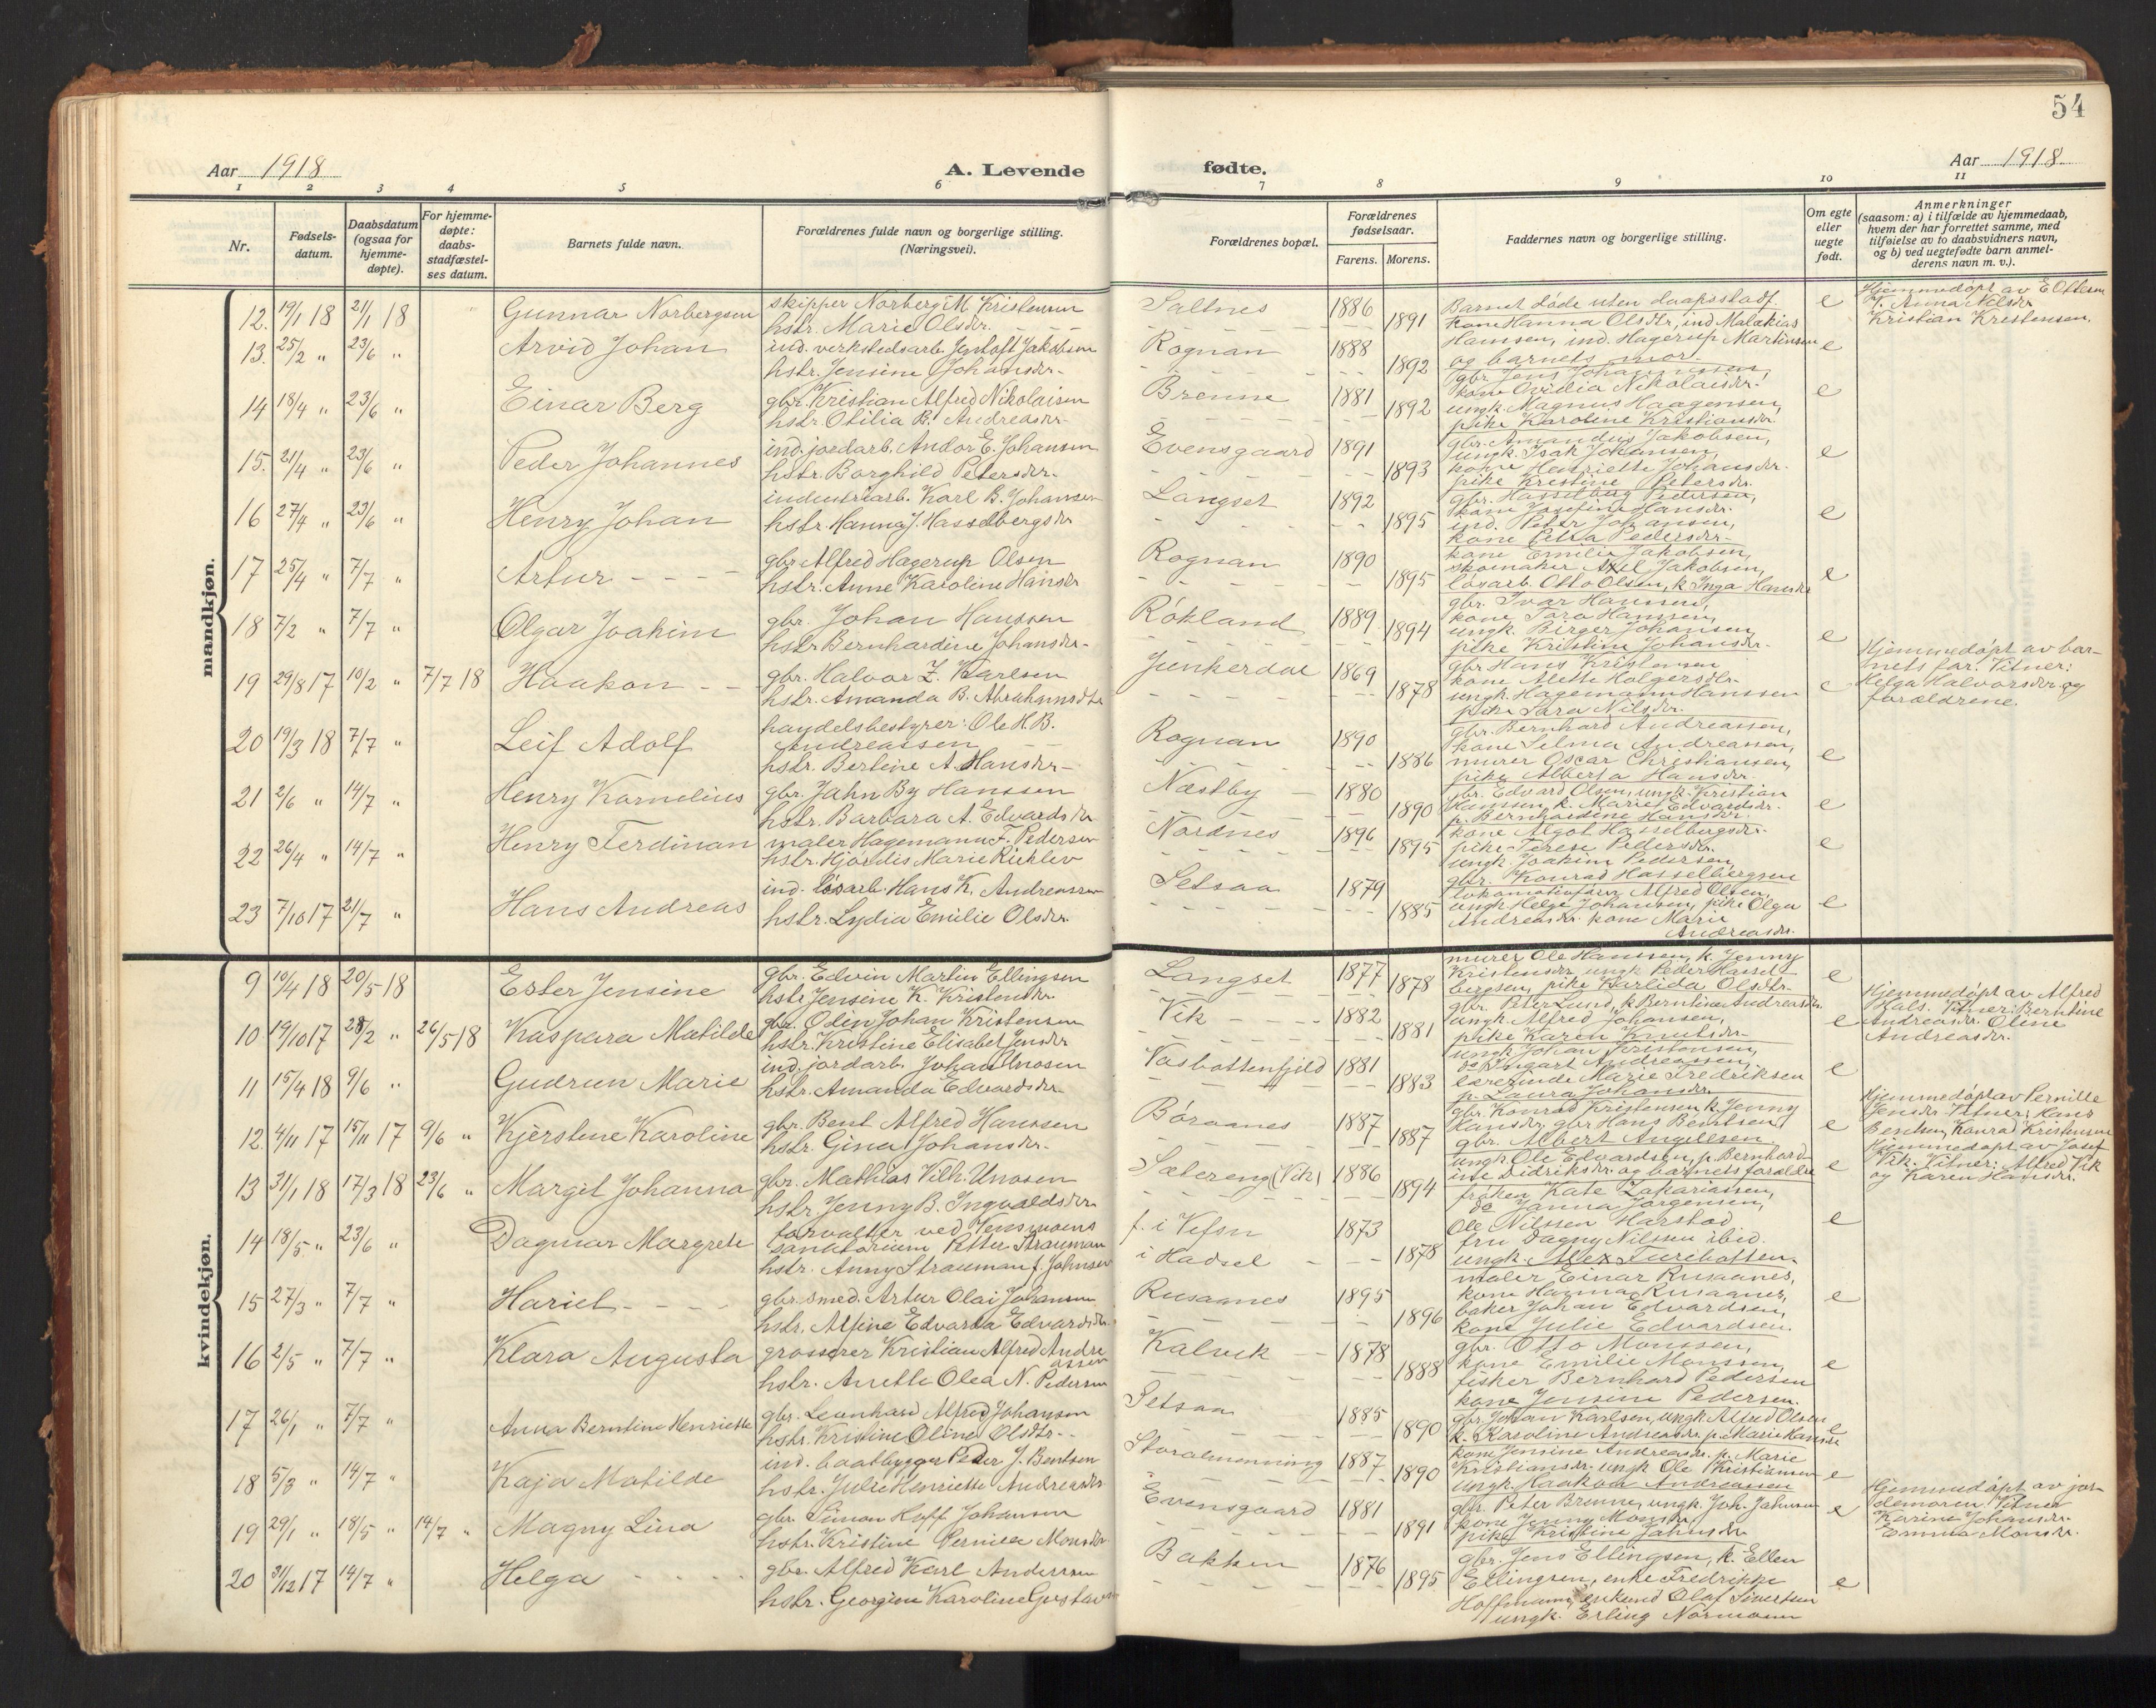 54
Aar 1918
A. Levende
fødte.
Aar 1918
1 2 3 4 5 6 7 8 9 10 11
Nr.
Fødsels-
datum.
Daabsdatum
(ogsaa for
hjemme-
døpte).
For hjemme-
døpte:
daabs-
stadfæstel-
ses datum.
Barnets fulde navn.
Forældrenes fulde navn og borgerlige stilling.
(Næringsvei).
Forældrenes bopæl.
Forældrenes
fødselsaar.
Farens. Morens.
Faddernes navn og borgerlige stilling.
Om egte
eller
uegte
født.
Anmerkninger
(saasom: a) i tilfælde av hjemmedaab,
hvem der har forrettet samme, med
tilføielse av to daabsvidners navn,
og b) ved uegtefødte barn anmel-
derens navn m. v.).
mandkjøn.
12. 19/1 18 21/1 18 Gunnar Norbergsen
skipper Norberg M. Kristensen
hstr. Marie Olsdr.
Saltnes 1886 1891
Barnet døde uten daapsstadf. e
Hjemmedøpt av E Ottesen
V. Anna Nilsdr.
Kristian Kristensen.
13. 25/2 " 23/6 " Arvid Johan
ind. verkstedsarb. Jentoft Jakobsen
hstr. Jensine Johansdr.
Rognan 1888 1892
kone Hanna Olsdtr, ind Malakias
Hansen, ind. Hagerup Martinsen
og barnets mor. e
14 18/4 " 23/6 " Einar Berg
gbr. Kristian Alfred Nikolaisen
hstr. Otilia B. Andreasdr.
Brenne 1881 1892
gbr Jens Johannessen,
kone Ovidia Nikolaisdr.
ungk. Magnus Haagensen,
pike Karoline Kristiansdr. e
15. 21/4 " 23/6 " Peder Johannes
ind. jordarb. Andor E. Johansen
hstr. Borghild Petersdr.
Evensgaard 1891 1893
gbr. Amandus Jakobsen,
ungk. Isak Johansen,
kone Henriette Johansdr.
pike Kristine Petersdr. e
16 27/4 " 23/6 " Henry Johan
industriarb. Karl G. Johansen
hstr. Hanna J. Hasselbergsdr
Langset 1892 1895
gbr. Hasselberg Pedersen,
kone Josefine Hansdr.
ind. Peter Johansen,
kone Petra Pedersdr. e
17 25/4 " 7/7 " Artur
gbr Alfred Hagerup Olsen
hstr. Anne Karoline Hansdr
Rognan 1890 1895
kone Emilie Jakobsen,
skomaker Axel Jakobsen,
løsarb. Otto Olsen, k. Inga Hansdr e
18 7/2 " 7/7 " Olgar Joakim
gbr. Johan Hanssen
hstr Bernhardine Johansdr.
Røkland 1889 1894
gbr. Ivar Hanssen,
kone Sara Hanssen,
ungk. Birger Johansen,
pike Kristine Johansdr. e
19 29/8 17 10/2 " 7/7 18 Haakon
gbr. Halvor Z. Karlsen
hstr. Amanda B. Abrahamsdtr
Junkerdal 1869 1878
gbr Hans Kristensen
kone Alette Holgersdtr.
ungk. Hagemann Hanssen
pike Sara Nilsdr. e
Hjemmedøpt av bar-
nets far. Vitner:
Helga Halvorsdr. og
forældrene.
20 19/3 18 7/7 " Leif Adolf
handelsbestyrer: Ole H. B.
Andreassen
hstr. Bertine A. Hansdr
Rognan 1890 1886
gbr. Bernhard Andreassen,
kone Selma Andreassen,
murer Oscar Christiansen,
pike Alberta Hansdr. e
21 2/6 " 14/7 " Henry Kornelius
gbr. Jahn By Hanssen
hstr. Barbara A. Edvardsdr
Næstby 1880 1890
gbr. Edvard Olsen, ungk. Kristian
Hanssen, k. Mariet Edvardsdr.
p. Bernhardine Hansdr. e
22 26/4 " 14/7 " Henry Ferdinan
maler Hagemann F. Pedersen
hstr. Hjørdis Marie Kiehlev
Nordnes 1896 1895
kone Algot Hasselbergsdr.
pike Terese Pedersdr.
ungk. Joakim Pedersen,
gbr. Konrad Hasselbergsen e
23 7/10 17 21/7 " Hans Andreas
ind. løsarb. Hans K. Andreassen
hstr. Lydia Emilie Olsdr.
Setsaa 1879 1885
lokomotivfører Alfred Olsen,
ungk. Helge Johansen, pike Olga
Andreasdr. kone Marie
Andreasdr. e
kvindekjøn.
9 10/4 18 20/5 18 Ester Jensine
gbr. Edvin Martin Ellingsen
hstr Jensine K. Kristensdr.
Langset 1877 1878
murer Ole Hanssen, k. Jenny
Kristensdr, ungk Peder Hassel-
bergsen, pike Karlida Olsdtr. e
10 19/10 17 28/2 " 26/5 18 Kaspara Matilde
gbr. Odin Johan Kristensen
hstr. Kristine Elisabet Jensdr
Vik 1882 1881
gbr. Peter Lund, k. Berntine Andreasdr.
ungk. Alfred Johansen,
pike Karen Knutsdr. e
Hjemmedøpt av Alfred
Vitner: Berntine
Andreasdr. Oline
Andreasdr.
11 15/4 18 9/6 " Gudrun Marie
ind. jordarb. Johan Unosen
hstr. Amanda Edvardsdr
Vasbottenfjeld 1881 1883
ungk Johan Kristensen,
do Ingart Andreassen,
lærerinde Marie Fredriksen
p. Laura Johansdr. e
12 4/11 17 15/11 17 9/6 " Kjerstene Karoline
gbr. Bent Alfred Hanssen
hstr. Gina Johansdr.
Børaanes 1887 1887
gbr. Konrad Kristensen k. Jenny
Hansdr, gbr Hans Bentsen,
gbr. Albert Angellsen. e
Hjemmedøpt av Pernille
Jensdr. Vitner: Hans
Bentsen, Konrad Kristensen
13 31/1 18 17/3 18 23/6 " Margit Johanna
gbr. Mathias Vilh. Unosen
hstr. Jenny B. Ingvaldsdr.
Sætereng (Vik) 1886 1894
ungk. Ole Edvardsen, p. Bernhard-
ine Didriksdr. og barnets forældre e
Hjemmedøpt av Josef
Vik. Vitner: Alfred Vik
og Karen Hansdr.
14 18/5 " 23/6 " Dagmar Margrete
forvalter ved Vensmoens
sanatorium Petter Strauman
hstr. Anny Strauman f. Johnsen
f. i Vefsn 1873
i Hadsel 1878
frøken Kate Zakariassen,
do Janna Jørgensen,
Ole Nilssen Harstad
fru Dagny Nilssen ibid.
ungk. Alex Turehoften. e
15 27/3 " 7/7 " Hariet
gbr. smed. Artur Olai Johansen
hstr. Alfine Edvarda Edvardsdr.
Rusaanes 1895 1896
maler Einar Rusaanes,
kone Hanna Rusaanes,
baker Johan Edvardsen,
kone Julie Edvardsen. e
16 2/5 " 7/7 " Klara Augusta
grosserer Kristian Alfred Andre
assen
hstr. Anette Olea N. Pedersen
Kalvik 1878 1888
gbr. Otto Monssen,
kone Emilie Monssen,
fisker Bernhard Pedersen
kone Jensine Pedersen. e
17 26/1 " 7/7 " Anna Berntine Henriette
gbr. Leonhard Alfred Johansen
hstr. Kristine Oline Olsdtr.
Setsaa 1885 1890
gbr. Johan Karlsen, ungk. Alfred Olsen
k. Karoline Andreasdr. p. Marie Hansdr e
18 5/3 " 14/7 " Kaja Matilde
ind. baatbygger Peder J. Bentsen
hstr. Julie Henriette Andreasdr
Storalmenning 1887 1890
kone Jensine Andreasdr. p. Marie
Kristiansdr. ungk Ole Kristiansen
ungk. Haakon Andreassen e
19 29/1 " 18/5 " 14/7 " Magny Lina
gbr. Simon Hoff Johansen
hstr. Kristine Pernilla Monsdr.
Evensgaard 1881 1891
gbr. Peter Brenne, ungk. Joh. Johansen
kone Jenny Monsdr.
pike Kristine Jahnsdr. e
Hjemmedøpt av jor-
demoren. Vitner
Karine Johnsdr.
Emma Monsdr.
20 31/12 17 14/7 " Helga
gbr. Alfred Karl Andersen
hstr. Georgine Karoline Gustavs
Bakken 1876 1895
gbr. Jens Ellingsen, k. Ellen
Ellingsen, enke Fredrikke
Hoffmann, enkemd Olaf Sivertsen
ungk. Erling Normann e